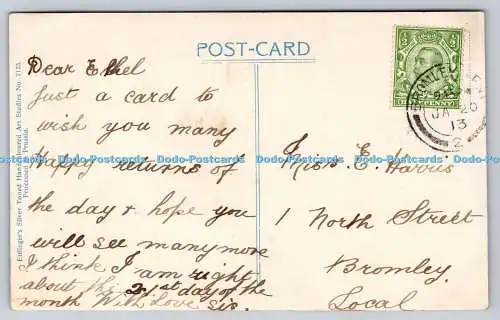 POST-CARD
Dear Ethel
Just a card to
wish you many
Happy returns of
the day & hope you
will see many more
I think I am right
about the 21st day of the
month With Love Sis.
Miss. E. Harris
1 North Street
Bromley.
Local
BROMLEY KENT
JA 20
13
2
Ettlinger's Silver Toned Hand-coloured Art Studies No. 7133.
Printed in Prussia.
Dodo-Postcards Dodo-Postcards Dodo-Postcards Dodo-Postcards Dodo-Postcards Dodo-Postcards